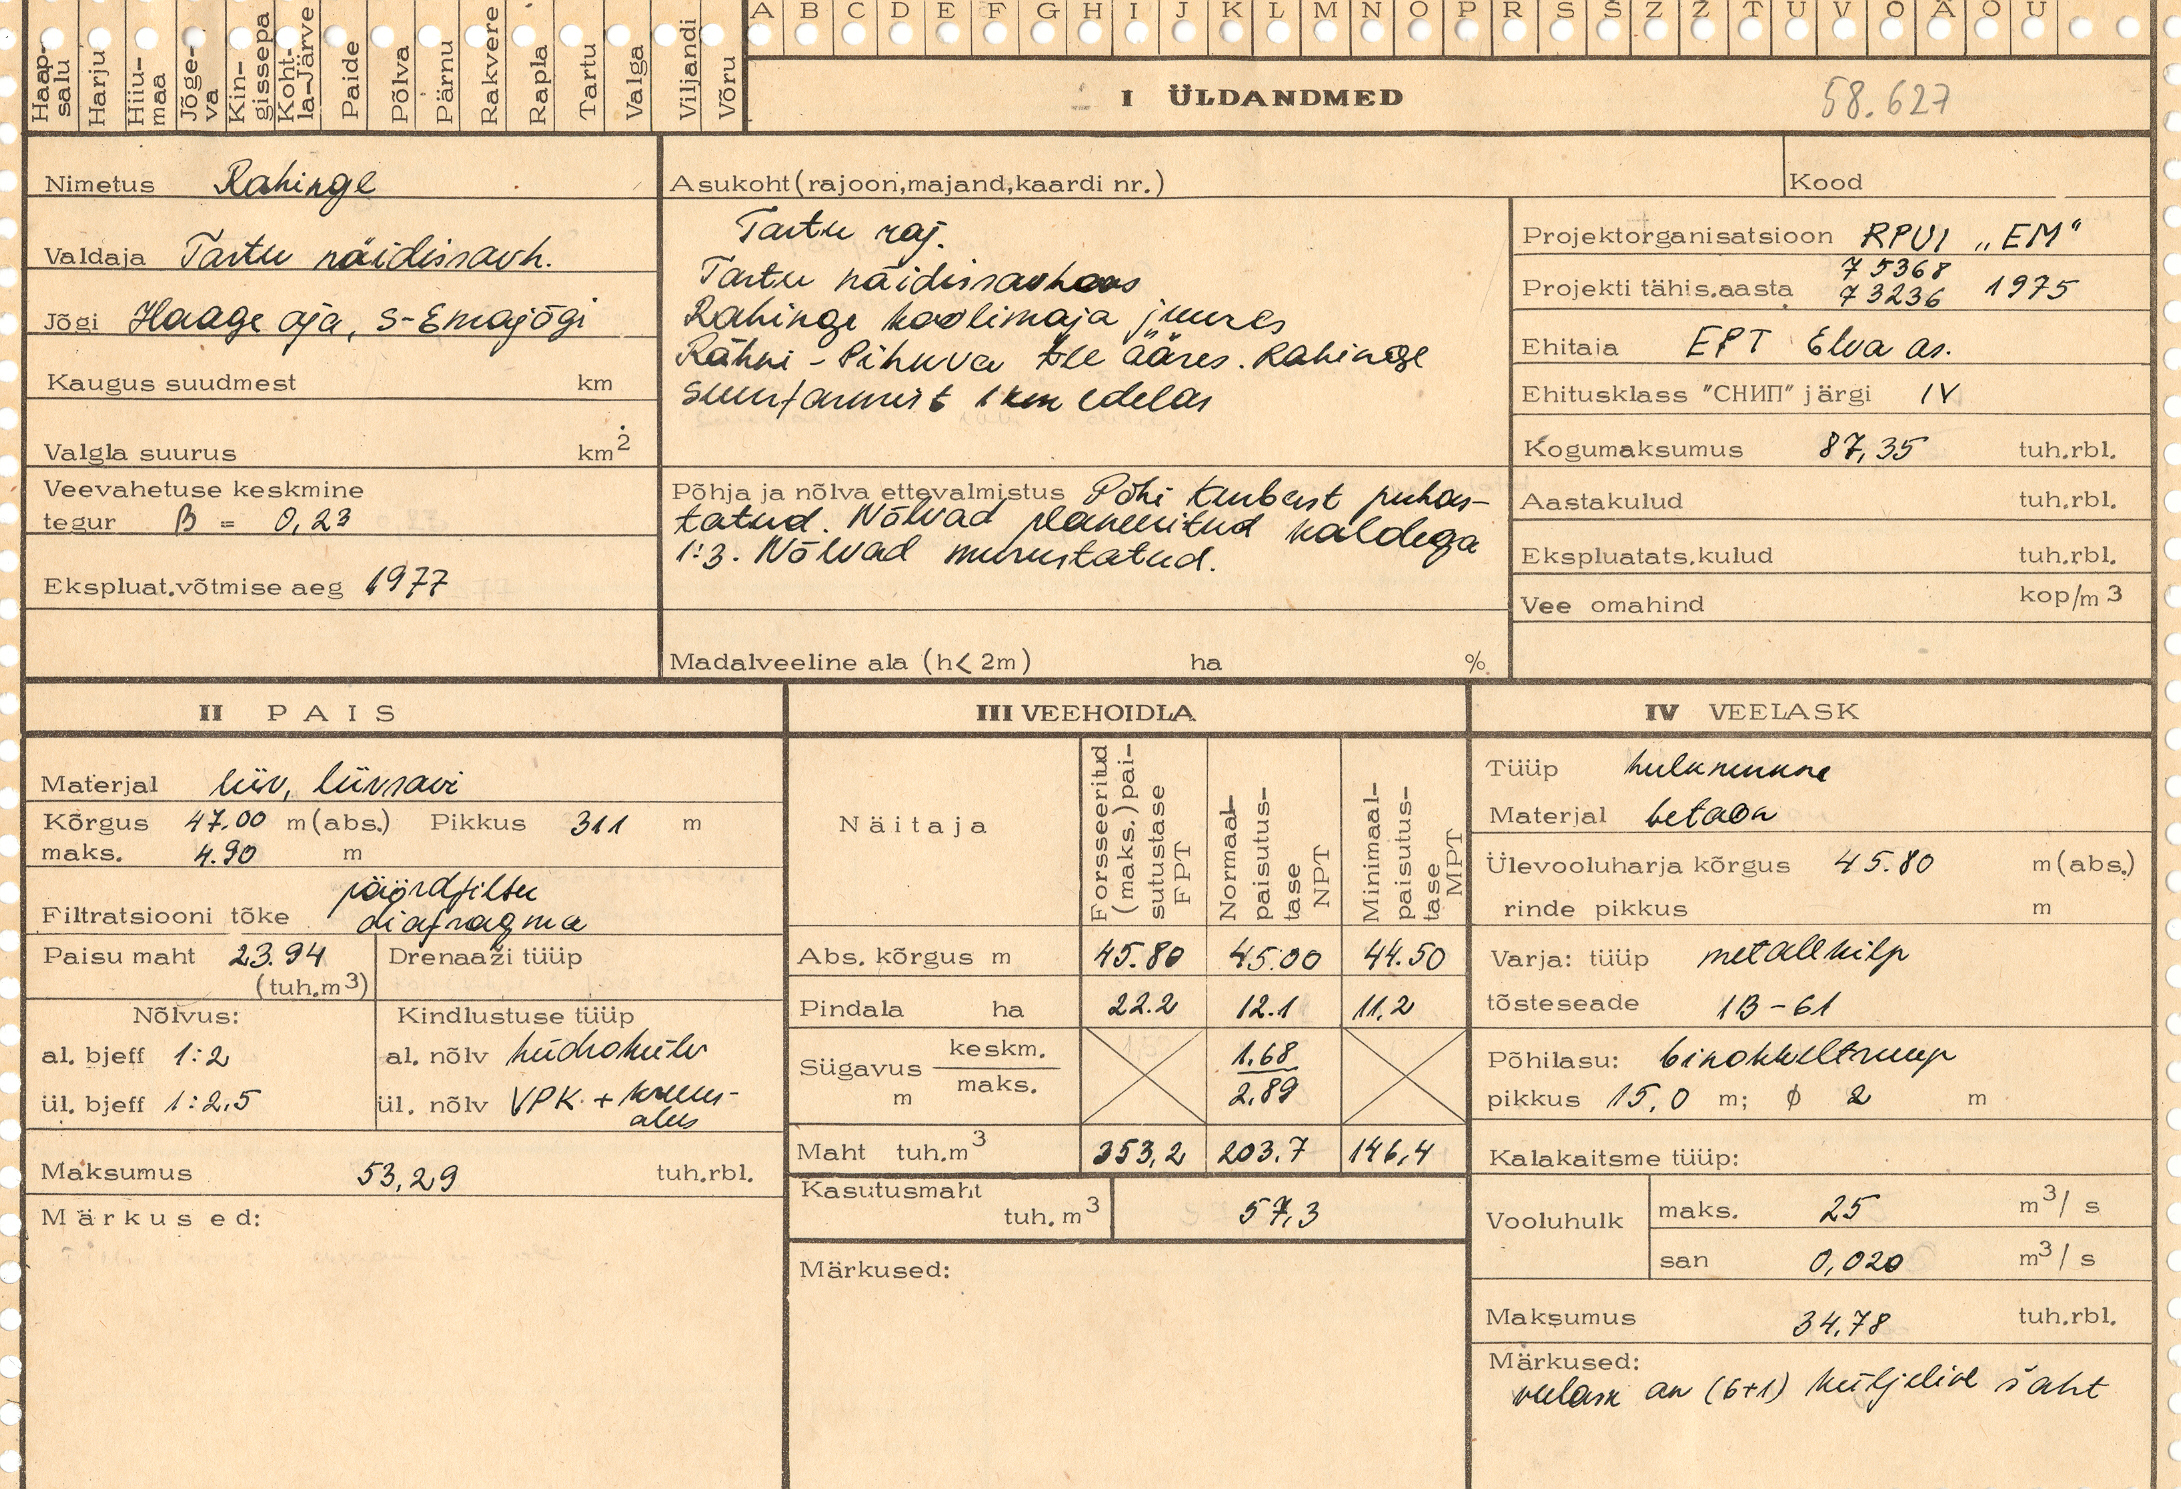 A B C D E F G H I J K L M N O P R S Š Z Ž T U V Õ Ä Ö Ü
Haap-salu
Harju
Hiiu-maa
Jõge-va
Kin-gissepa
Koht-la-Järve
Paide
Põlva
Pärnu
Rakvere
Rapla
Tartu
Valga
Viljandi
Võru
I ÜLDANDMED 58.627
Nimetus Rahinge
Valdaja Tartu näidissovh.
Jõgi Haage oja, S-Emajõgi
Kaugus suudmest km
Valgla suurus km2
Veevahetuse keskmine
tegur β = 0,23
Ekspluat.võtmise aeg 1977
Asukoht (rajoon,majand,kaardi nr.)
Tartu raj.
Tartu näidissovhoos
Rahinge koolimaja juures
Rähni - Pihuva tee ääres. Rahinge
suurfarmist 1 km edelas
Põhja ja nõlva ettevalmistus Põhi turbast puhas-
tatud. Nõlvad planeeritud kaldega
1:3. Nõlvad murustatud.
Madalveeline ala (h< 2m) ha %
Kood
Projektorganisatsioon RPUI „EM"
Projekti tähis.aasta 75368 73236 1975
Ehitaja EPT Elva os.
Ehitusklass "СНИП" järgi IV
Kogumaksumus 87,35 tuh.rbl.
Aastakulud tuh.rbl.
Ekspluatats.kulud tuh.rbl.
Vee omahind kop/m3
II PAIS
Materjal liiv, liivsavi
Kõrgus 47.00 m(abs.) Pikkus 311 m
maks. 4.90 m
pöördfilter
Filtratsiooni tõke diafragma
Paisu maht 23.94 Drenaaži tüüp
(tuh.m3)
Nõlvus: Kindlustuse tüüp
al. bjeff 1:2 al. nõlv hüdrokülv
ül. bjeff 1:2,5 ül. nõlv VPK + kruus-
alus
Maksumus 53,29 tuh.rbl.
Märkused:
III VEEHOIDLA
Näitaja
Forsseeritud (maks.) pai-sutustase FPT
Normaal-paisutus-tase NPT
Minimaal-paisutus-tase MPT
Abs. kõrgus m 45.80 45.00 44.50
Pindala ha 22.2 12.1 11.2
Sügavus m keskm. 1.68
maks. 2.89
Maht tuh.m3 353,2 203.7 146,4
Kasutusmaht
tuh. m3 57,3
Märkused:
IV VEELASK
Tüüp hulknurkne
Materjal betoon
Ülevooluharja kõrgus 45.80 m(abs.)
rinde pikkus m
Varja: tüüp metallkilp
tõsteseade 1B-61
Põhilasu: binokkeltruup
pikkus 15,0 m; ϕ 2 m
Kalakaitsme tüüp:
Vooluhulk maks. 25 m3/ s
san 0,020 m3/ s
Maksumus 34,78 tuh.rbl.
Märkused:
veelask on (6+1) küljeline šaht